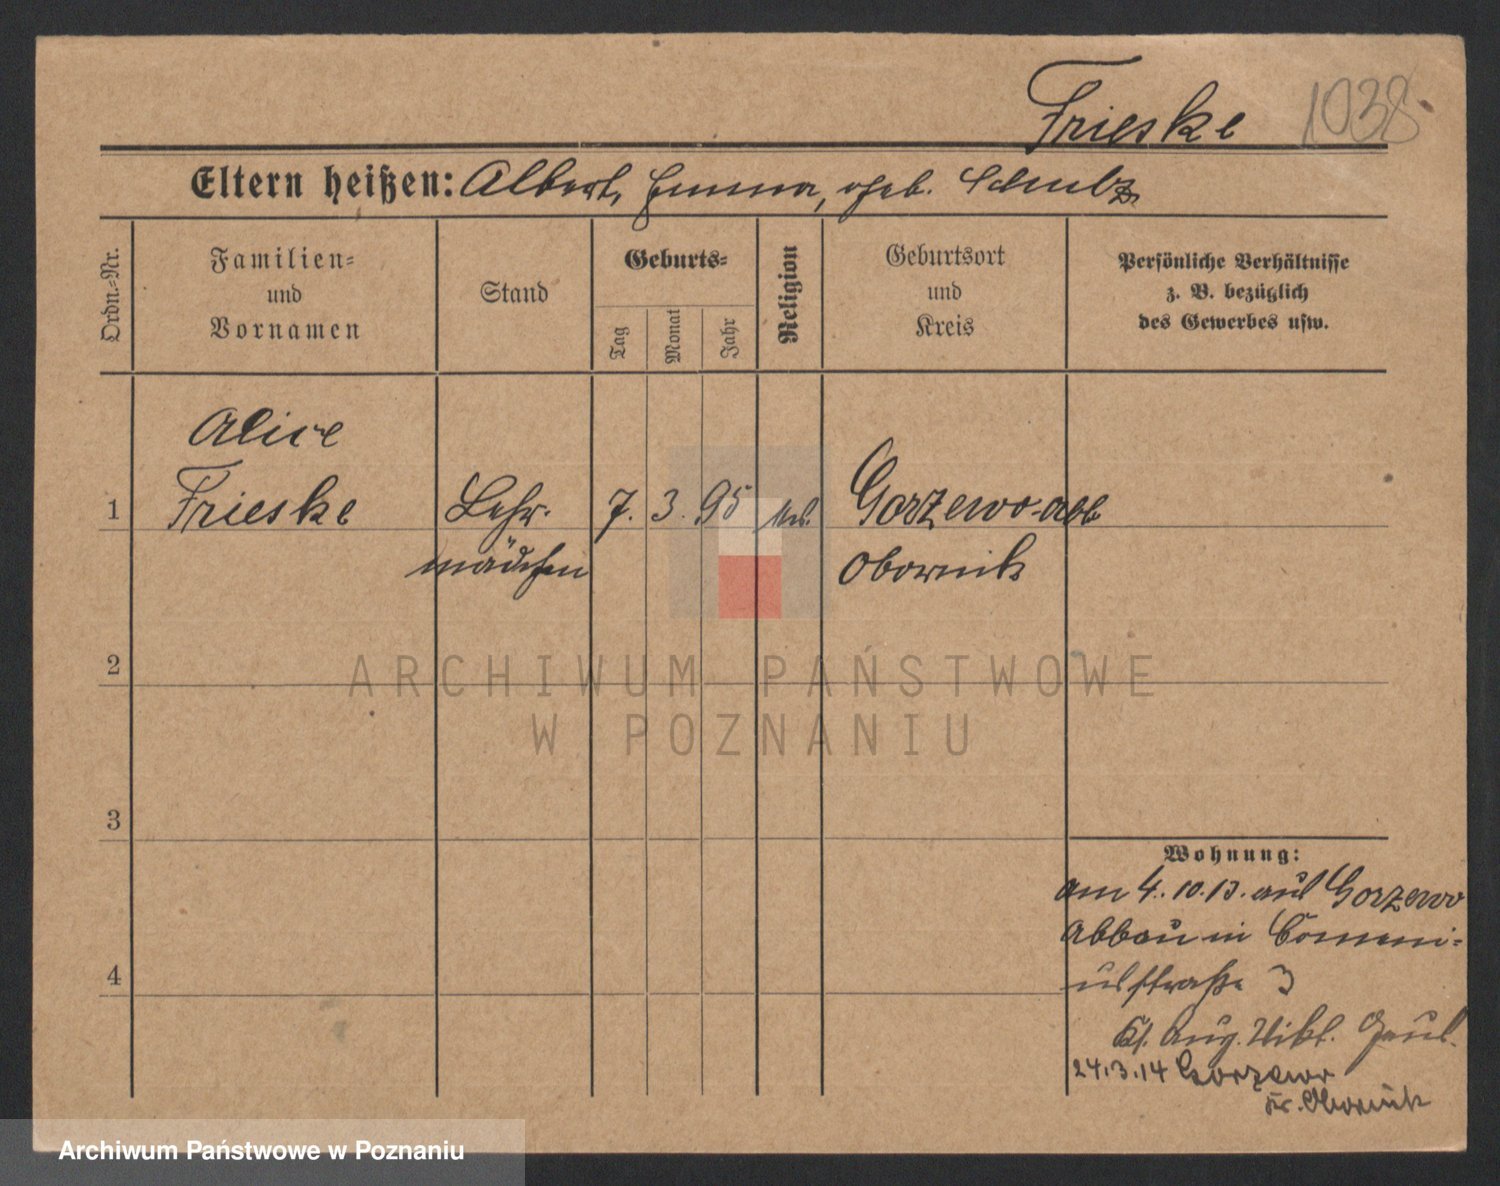 Frieske 1038
Eltern heißen: Albert, Emma, geb. Schulz
Ordn.=Nr.
Familien=
und
Vornamen
Stand
Geburts=
Tag
Monat
Jahr
Religion
Geburtsort
und
Kreis
Persönliche Verhältnisse
z. B. bezüglich
des Gewerbes usw.
Alice
1 Frieske Lehr- 7. 3. 95 Gorzewo-Abb
mädchen Obornik
2
ARCHIWUM PAŃSTWOWE
W POZNANIU
3
Wohnung:
am 4.10.13. aus Gorzewo
Abbau in Comeni=
usstraße 3
Aug. Vikt.
4
24.3.14 Gorzewo
Kr. Obornik
Archiwum Państwowe w Poznaniu